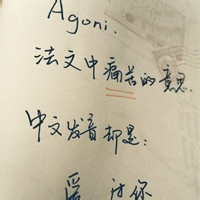 Agoni.
法文中痛苦的意思.
中文发音却是:
爱 过 你